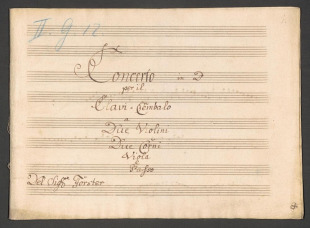 II. g. 12
Ex
Concerto in D
per il
Clavi-Cembalo
a
Due Violini
Due Corni
Viola
e
Basso
Del Sigr. Förster